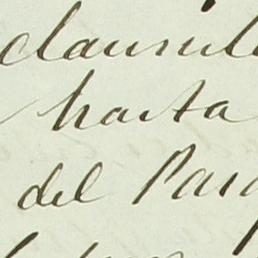 clausul
hasta
del Par